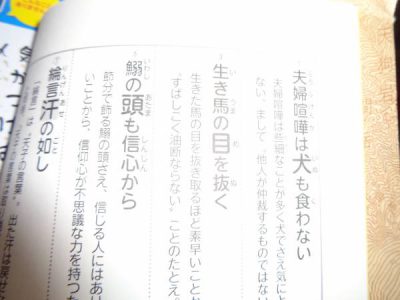 夫婦喧嘩は犬も食わない
夫婦喧嘩は些細なことが多く犬でさえ気に
ない、まして、他人が仲裁するものではない
生き馬の目を抜く
生きた馬の目を抜き取るほど素早いこと
「すばしこく油断ならない」ことのたとえ。
鰯の頭も信心から
節分で飾る鰯の頭さえ、信じる人にはあり
いことから、信仰心が不思議な力を持つた
綸言汗の如し
「綸言」は「天子の言葉」。出た汗は戻せ